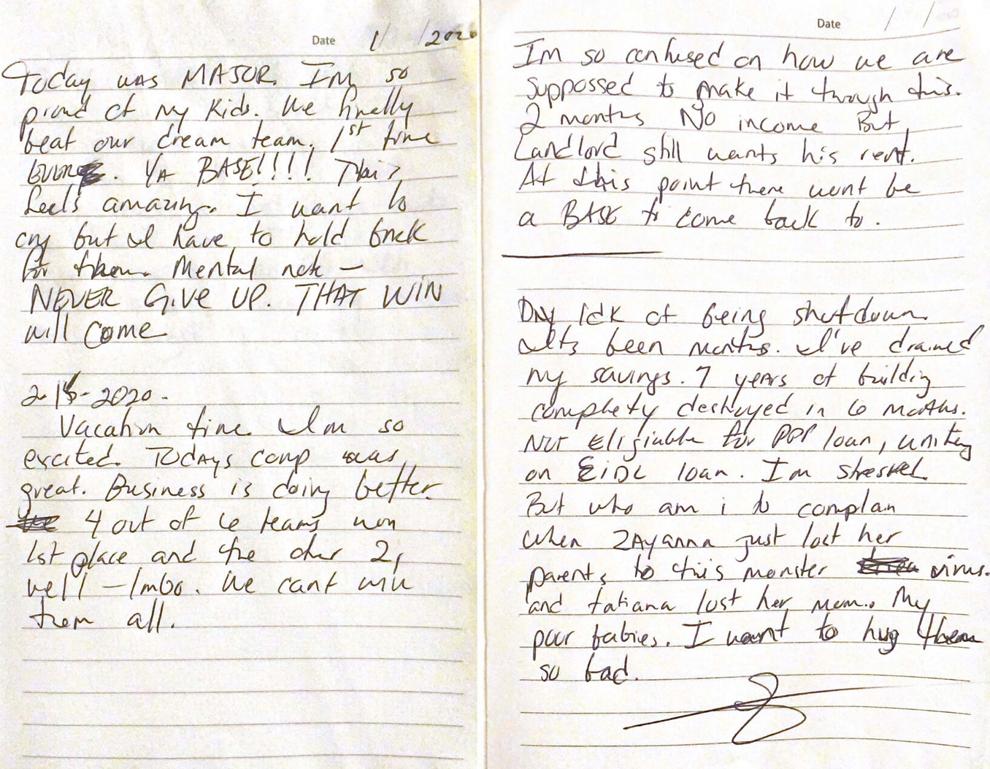 Date 1/ /2020
Today was MAJOR. Im so
proud of my kids. We finally
beat our dream team. 1st time
EVER. YA BASE!!!! This
feels amazing. I want to
cry but I have to hold back
for them. Mental note —
NEVER GIVE UP. THAT WIN
will come
2-15-2020.
Vacation time. Im so
excited. TODAYS comp was
great. Business is doing better
4 out of 6 teams won
1st place and the other 2,
well — lmbo. We cant win
them all.
Date / /
Im so confused on how we are
supposed to make it through this.
2 months No income But
Landlord still wants his rent.
At this point there wont be
a BASE to come back to.
Day idk of being shutdown.
Its been months. I've drained
my savings. 7 years of building
complety destroyed in 6 months.
NOT Eligiable for PPP loan, waiting
on EIDL loan. I'm stressed.
But who am i to complan
when ZAyanna just lost her
parents to this monster virus.
and tatiana lost her mom. My
poor babies. I want to hug them
so bad.